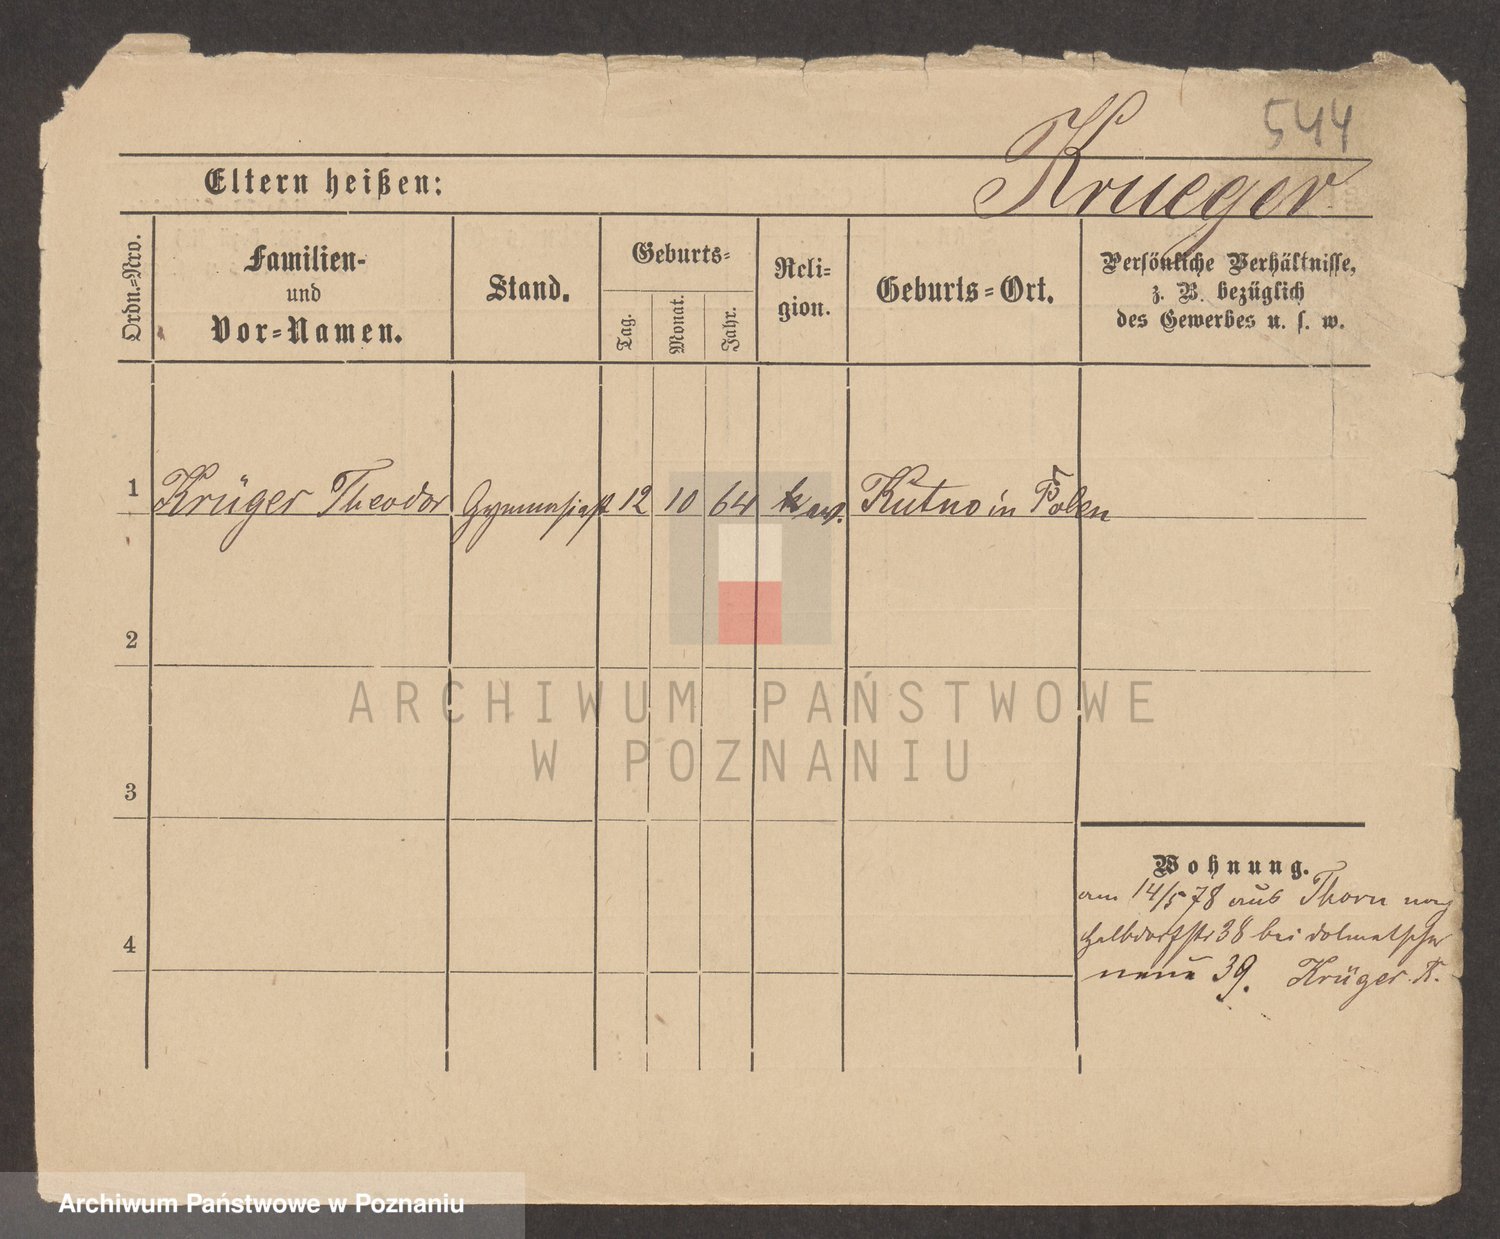 544
Krueger
Eltern heißen:
Ordn.=Nro.
Familien-
und
Vor=Namen.
Stand.
Geburts=
Tag.
Monat.
Jahr.
Reli=
gion.
Geburts=Ort.
Persönliche Verhältnisse,
z. B. bezüglich
des Gewerbes u. s. w.
1 Krüger Theodor Gymnasiast 12 10 64 ev. Kutno in Polen
2
3
4
Wohnung.
am 14/5 78 aus Thorn nach
Halbdorfstr 38 bei Dolmetscher
neue 39. Krüger K.
ARCHIWUM PAŃSTWOWE
W POZNANIU
Archiwum Państwowe w Poznaniu